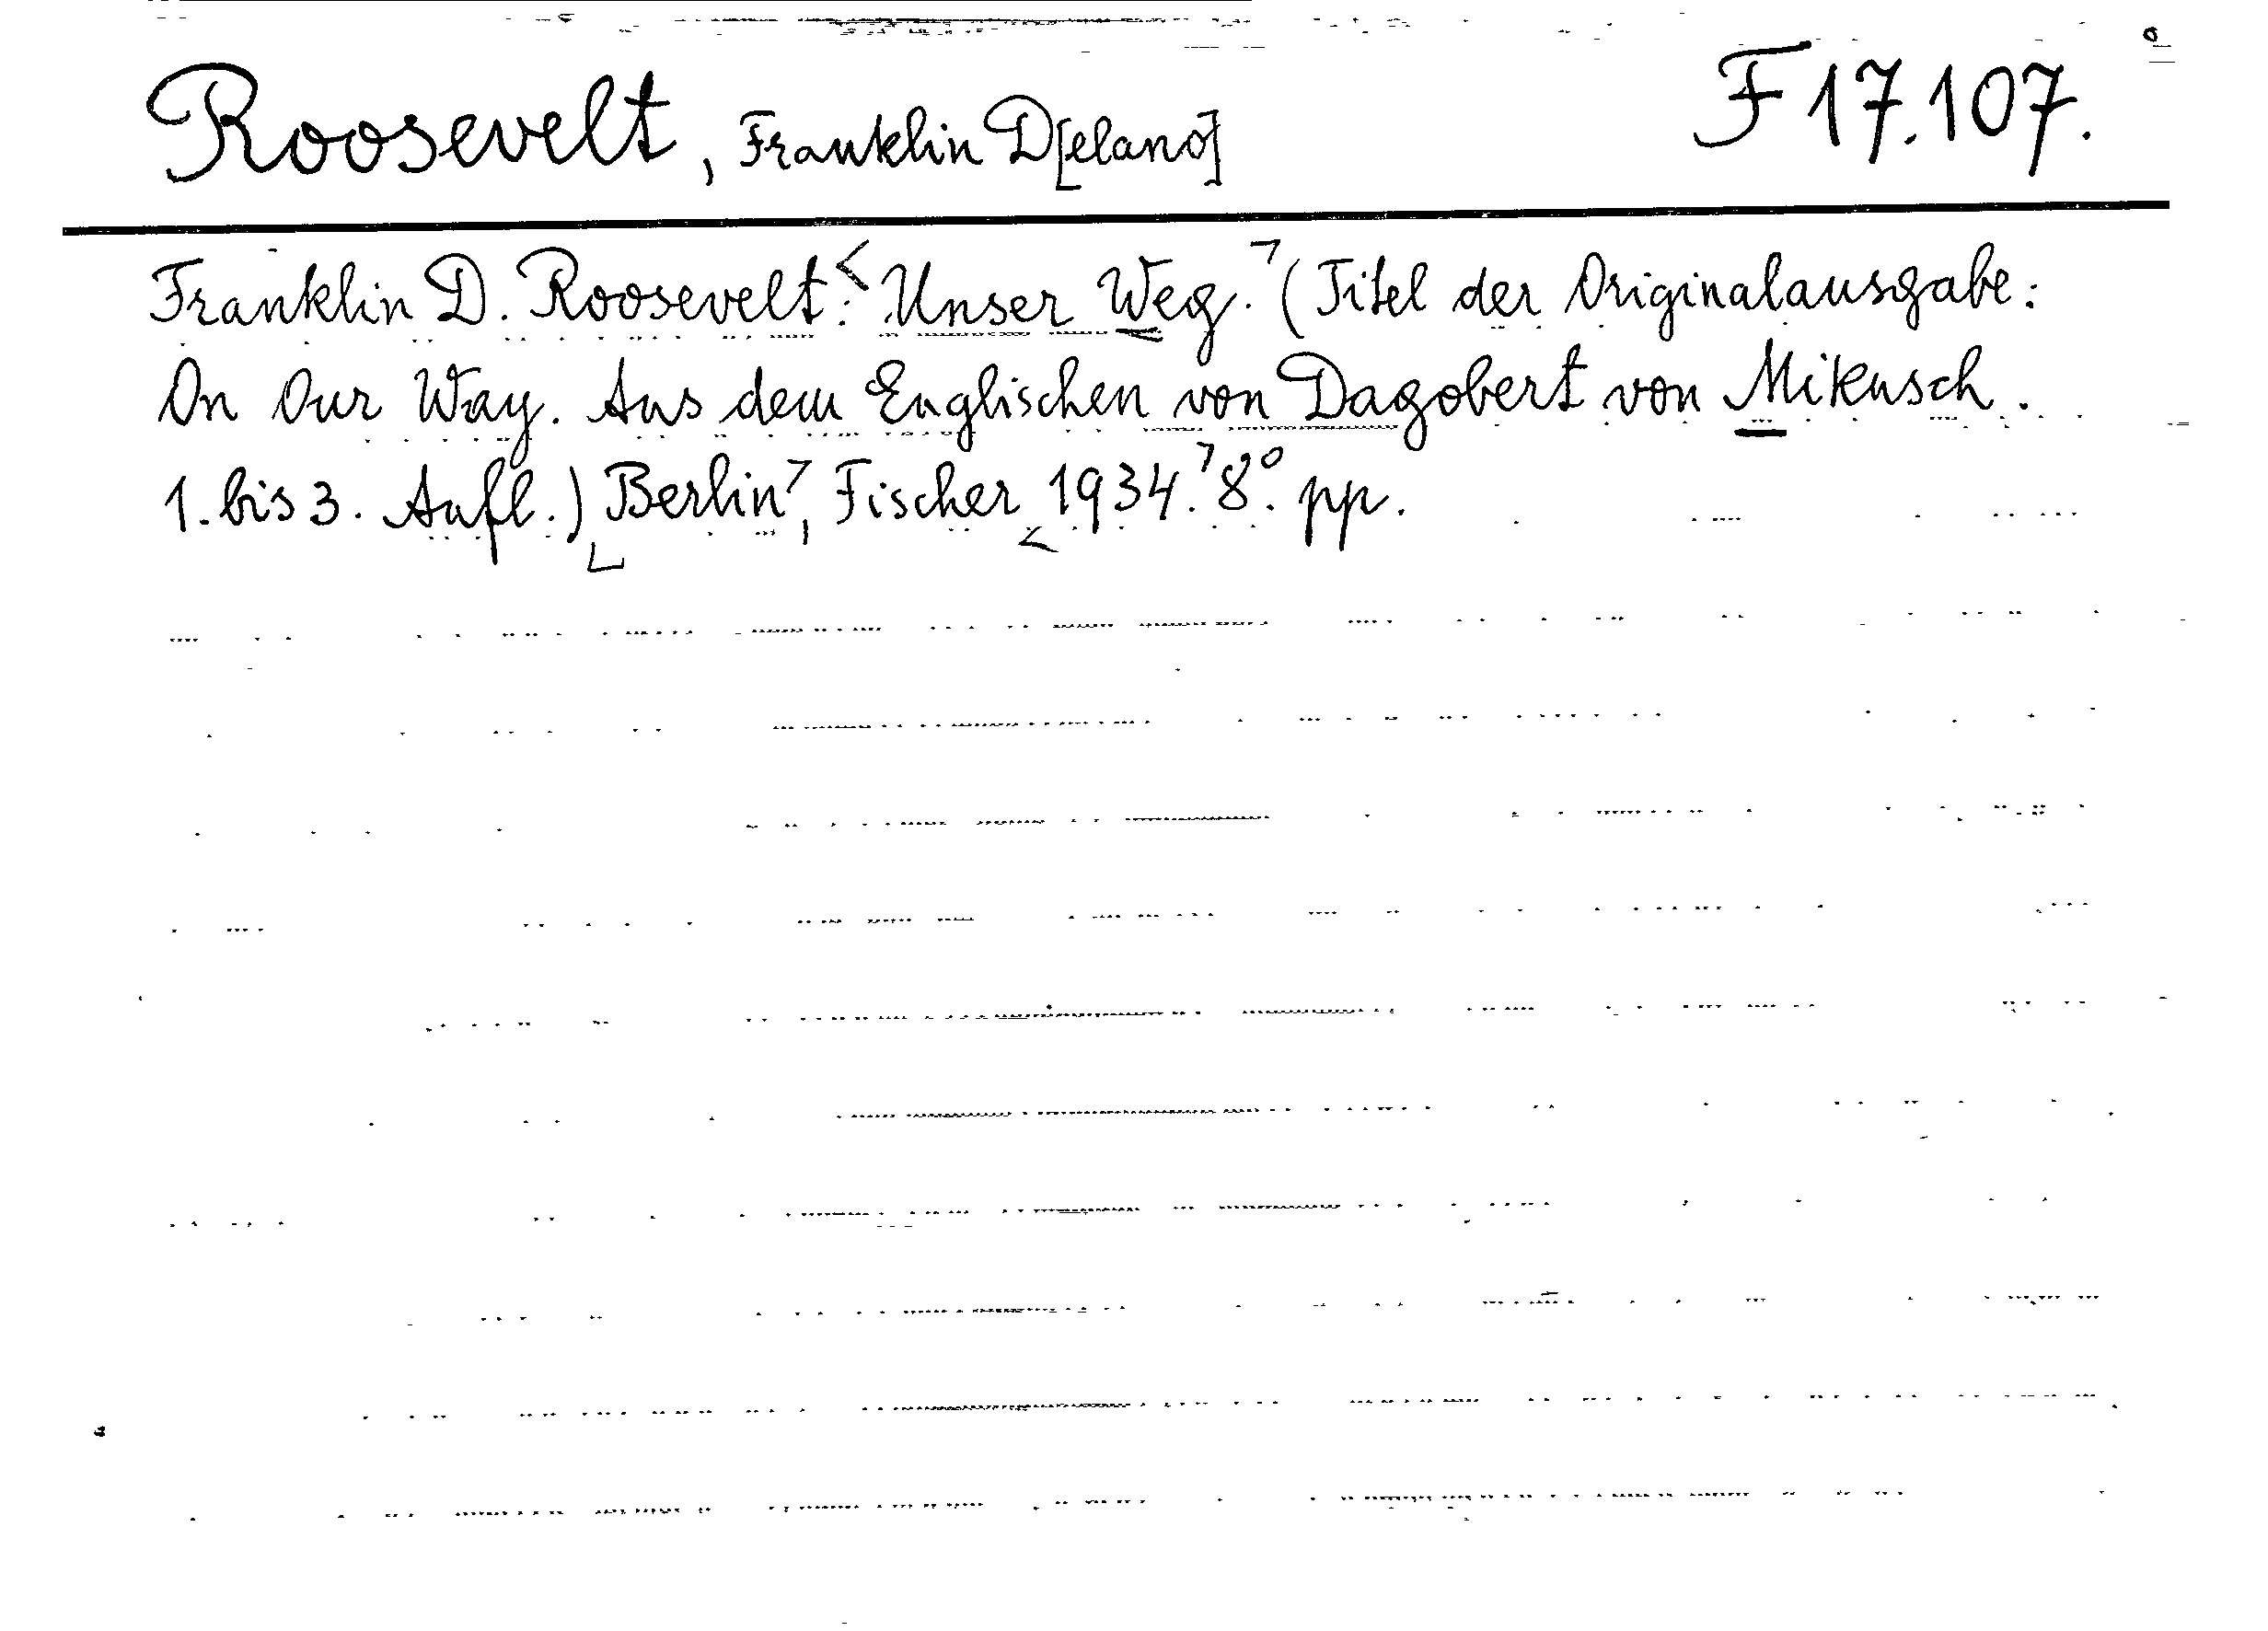 Roosevelt, Franklin D[elano] F 17.107.
Franklin D. Roosevelt: Unser Weg. (Titel der Originalausgabe:
On Our Way. Aus dem Englischen von Dagobert von Mikusch.
1. bis 3. Aufl.) Berlin, Fischer 1934. 8°. pp.